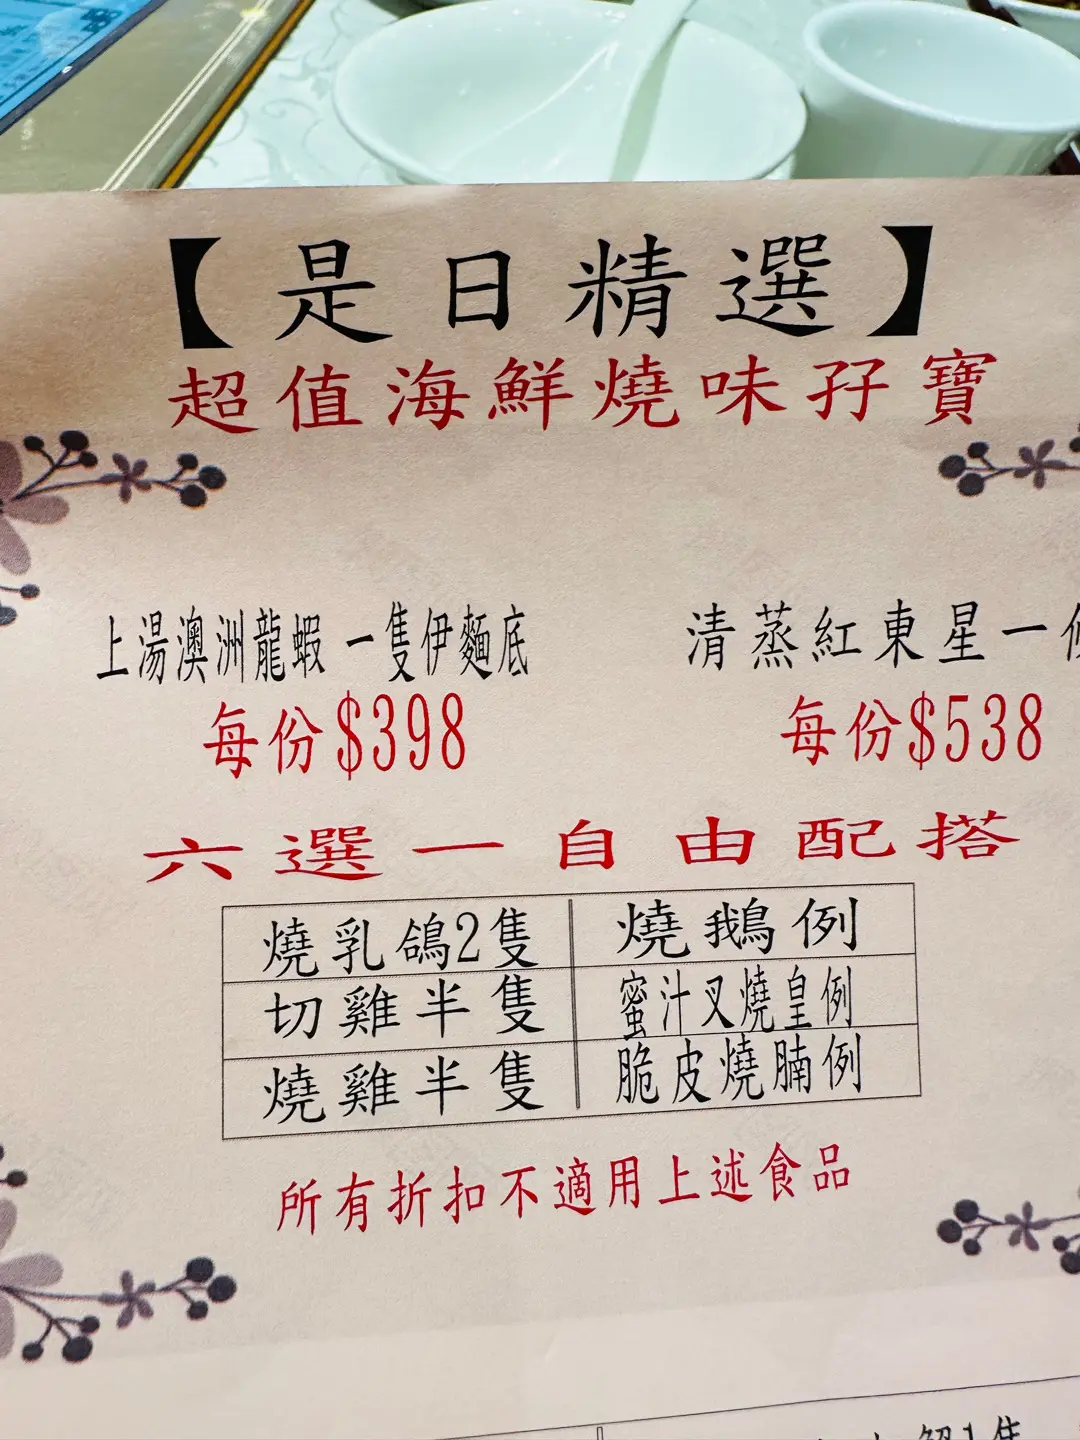 【是日精選】
超值海鮮燒味孖寶
上湯澳洲龍蝦一隻伊麵底
每份$398
清蒸紅東星一
每份$538
六選一自由配搭
燒乳鴿2隻
燒鵝例
切雞半隻
蜜汁叉燒皇例
燒雞半隻
脆皮燒腩例
所有折扣不適用上述食品
1隻